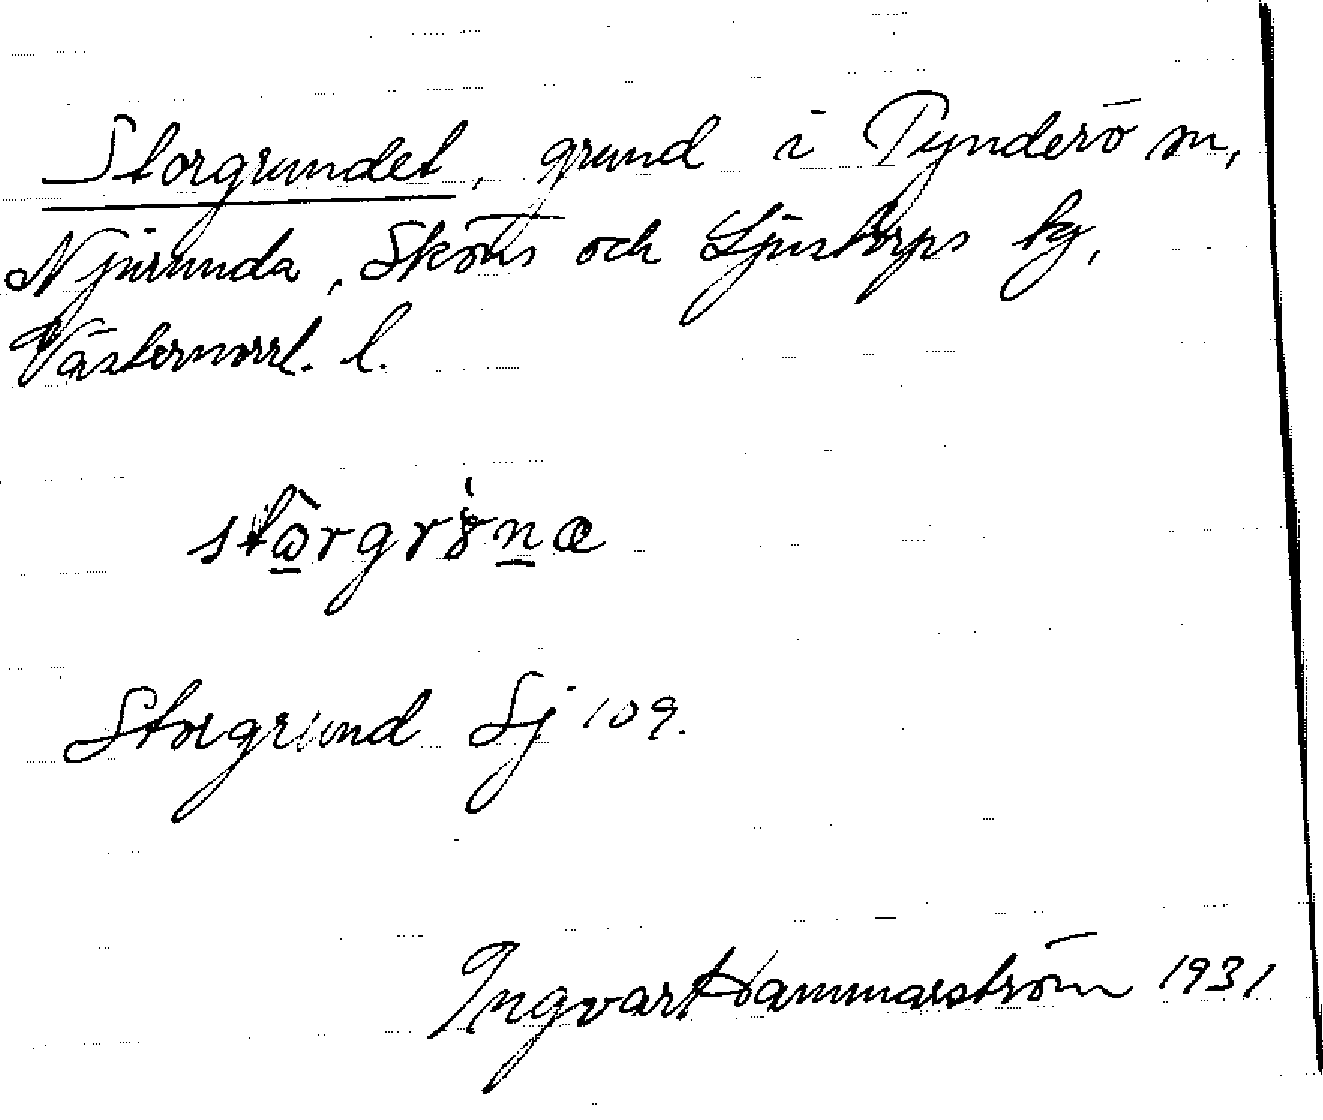 Storgrundet, grund i Tynderö sn,
Njurunda, Sköns och Ljustorps tg,
Västernorrl. l.
Storgrund Sj 109.
Ingvar Hammarström 1931